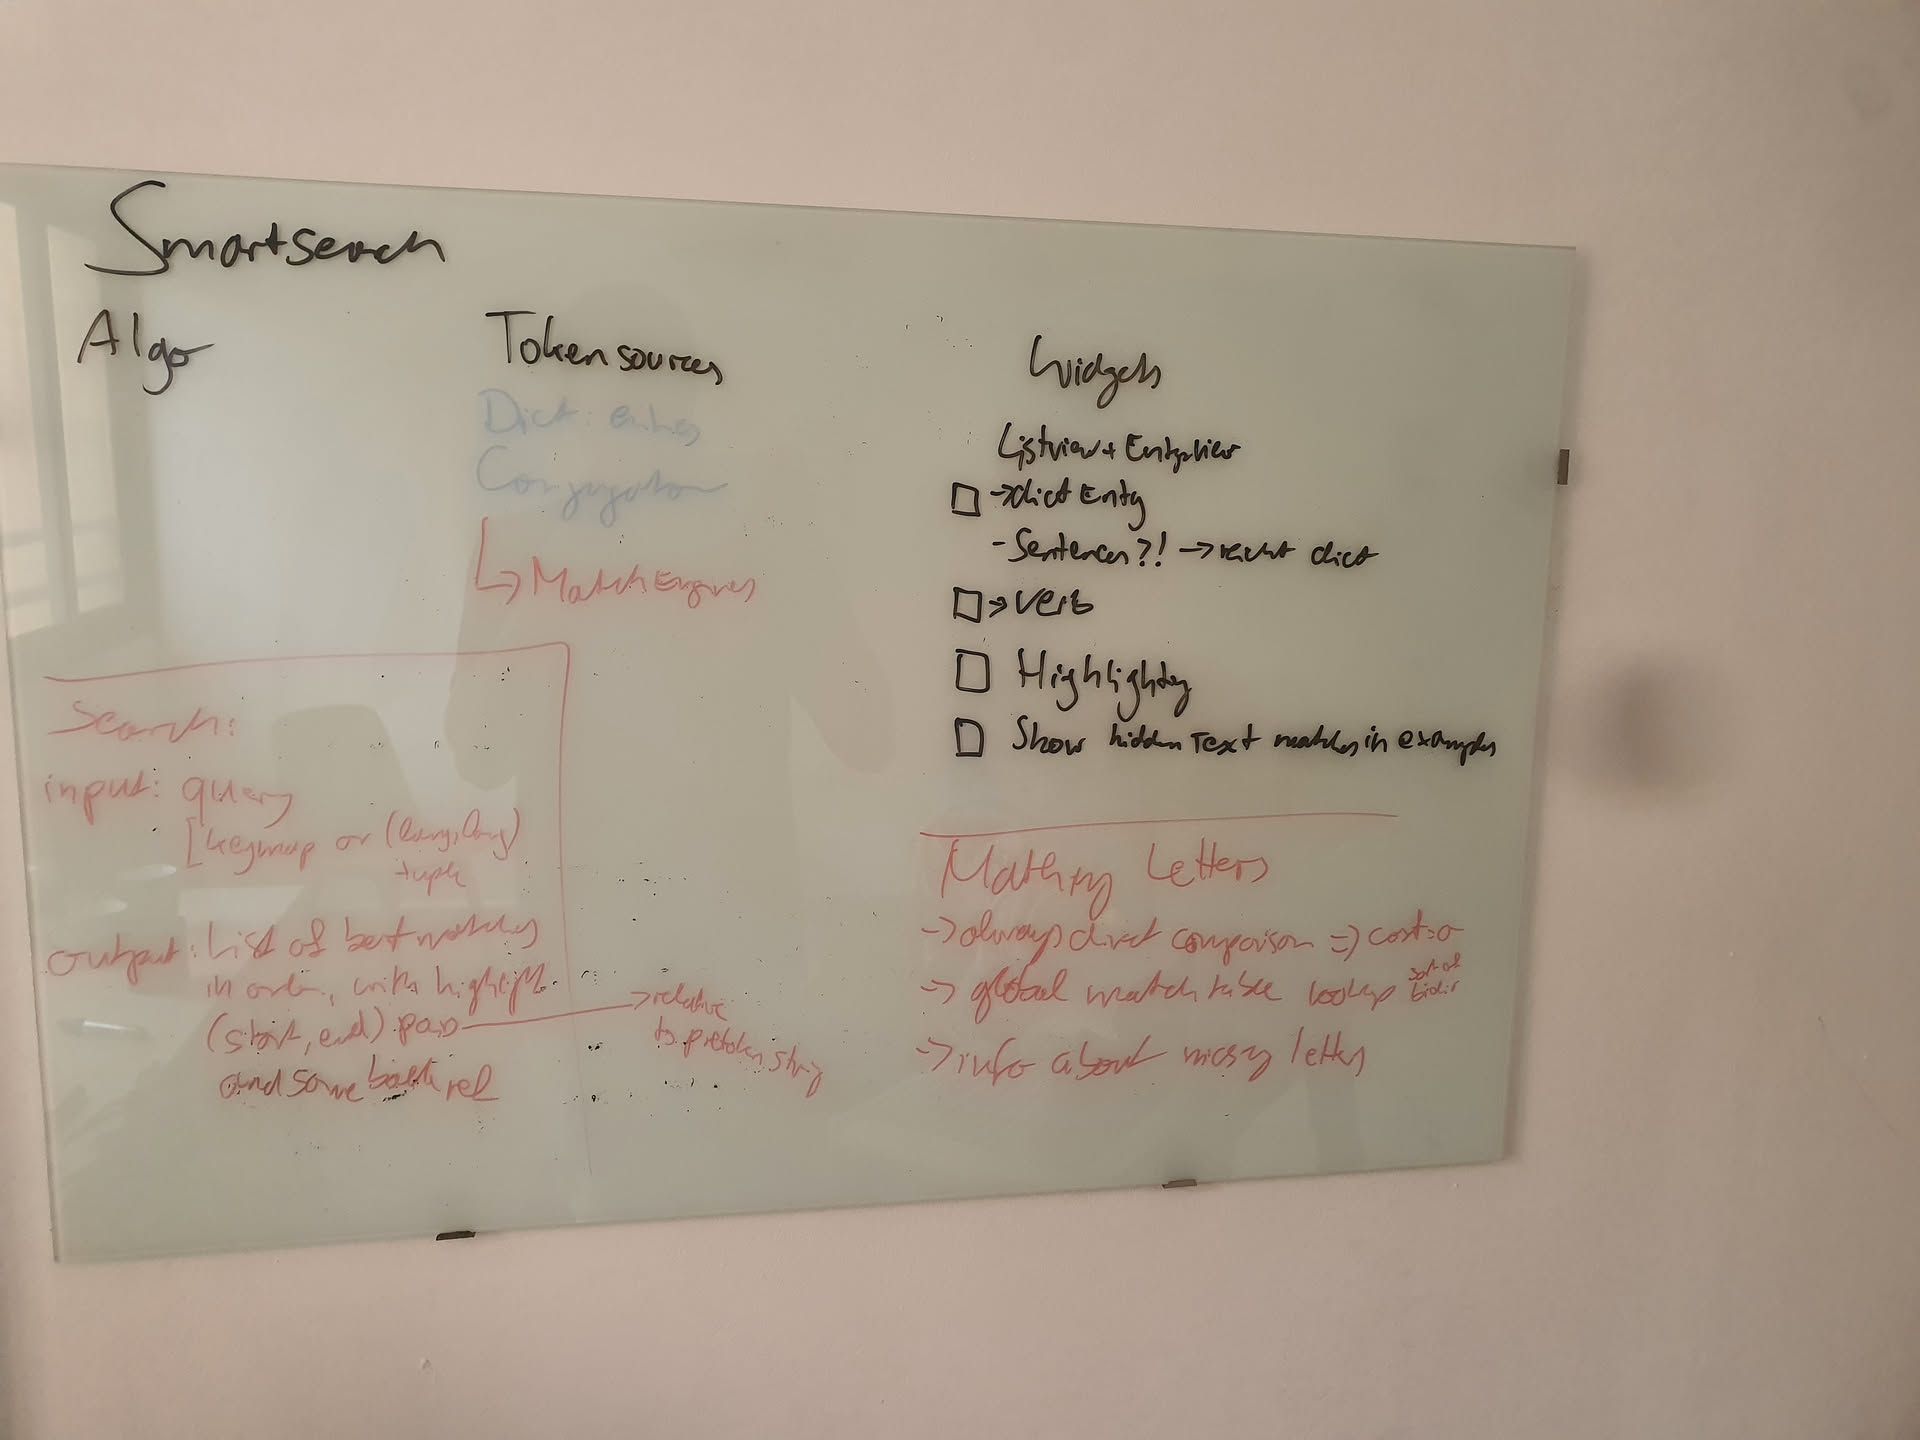 Smartsearch
Algo
Tokensources
Dict: entries
Conjugation
↳ MatchEngines
Widgets
Listview + Entryview
☐ → dict Entry
- Sentences?! → dict
☐ → Verb
☐ Highlighting
☐ Show hidden Text matches in examples
Search:
input: query
[keymap or (lang, lang)
tuple
output: List of best matches
in order, with highlight
(start, end) pairs → relative
to pretoken string
and some back ref
Matching Letters
→ always direct comparison => cost: 0
→ global match table lookup sort of bidir
→ info about missing letters